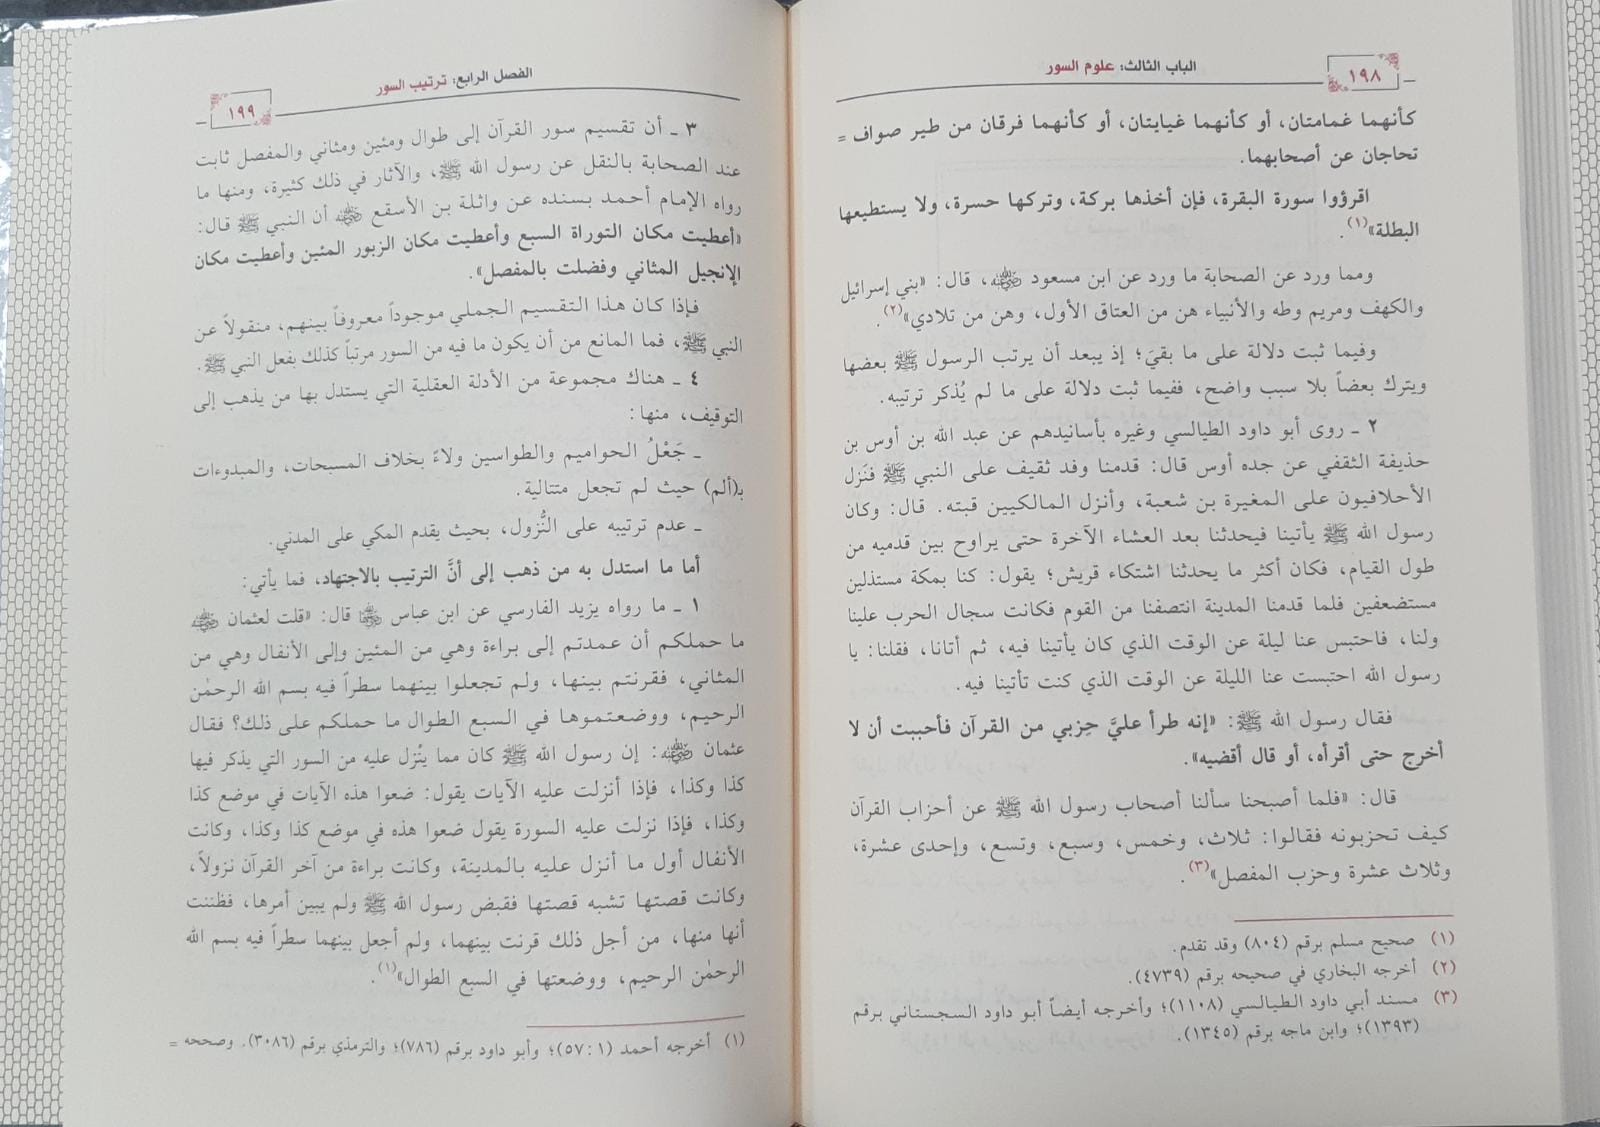 ١٩٨
الباب الثالث: علوم السور
كأنهما غمامتان، أو كأنهما غيايتان، أو كأنهما فرقان من طير صواف =
تحاجان عن أصحابهما.
اقرؤوا سورة البقرة، فإن أخذها بركة، وتركها حسرة، ولا يستطيعها
البطلة»(١).
ومما ورد عن الصحابة ما ورد عن ابن مسعود رضي الله عنه، قال: «بني إسرائيل
والكهف ومريم وطه والأنبياء هن من العتاق الأول، وهن من تلادي»(٢).
وفيما ثبت دلالة على ما بقيَ؛ إذ يبعد أن يرتب الرسول ﷺ بعضها
ويترك بعضاً بلا سبب واضح، ففيما ثبت دلالة على ما لم يُذكر ترتيبه.
٢ ـ روى أبو داود الطيالسي وغيره بأسانيدهم عن عبد الله بن أوس بن
حذيفة الثقفي عن جده أوس قال: قدمنا وفد ثقيف على النبي ﷺ فنَزل
الأحلافيون على المغيرة بن شعبة، وأنزل المالكيين قبته. قال: وكان
رسول الله ﷺ يأتينا فيحدثنا بعد العشاء الآخرة حتى يراوح بين قدميه من
طول القيام، فكان أكثر ما يحدثنا اشتكاء قريش؛ يقول: كنا بمكة مستذلين
مستضعفين فلما قدمنا المدينة انتصفنا من القوم فكانت سجال الحرب علينا
ولنا، فاحتبس عنا ليلة عن الوقت الذي كان يأتينا فيه، ثم أتانا، فقلنا: يا
رسول الله احتبست عنا الليلة عن الوقت الذي كنت تأتينا فيه.
فقال رسول الله ﷺ: «إنه طرأ عليَّ حِزبي من القرآن فأحببت أن لا
أخرج حتى أقرأه، أو قال أقضيه».
قال: «فلما أصبحنا سألنا أصحاب رسول الله ﷺ عن أحزاب القرآن
كيف تحزبونه فقالوا: ثلاث، وخمس، وسبع، وتسع، وإحدى عشرة،
وثلاث عشرة وحزب المفصل»(٣).
(١) صحيح مسلم برقم (٨٠٤) وقد تقدم.
(٢) أخرجه البخاري في صحيحه برقم (٤٧٣٩).
(٣) مسند أبي داود الطيالسي (١١٠٨)؛ وأخرجه أيضاً أبو داود السجستاني برقم
(١٣٩٣)؛ وابن ماجه برقم (١٣٤٥).
الفصل الرابع: ترتيب السور
١٩٩
٣ ـ أن تقسيم سور القرآن إلى طوال ومئين ومثاني والمفصل ثابت
عند الصحابة بالنقل عن رسول الله ﷺ، والآثار في ذلك كثيرة، ومنها ما
رواه الإمام أحمد بسنده عن واثلة بن الأسقع رضي الله عنه أن النبي ﷺ قال:
«أعطيت مكان التوراة السبع وأعطيت مكان الزبور المئين وأعطيت مكان
الإنجيل المثاني وفضلت بالمفصل».
فإذا كان هذا التقسيم الجملي موجوداً معروفاً بينهم، منقولاً عن
النبي ﷺ، فما المانع من أن يكون ما فيه من السور مرتباً كذلك بفعل النبي ﷺ.
٤ ـ هناك مجموعة من الأدلة العقلية التي يستدل بها من يذهب إلى
التوقيف، منها:
ـ جَعْلُ الحواميم والطواسين ولاءً بخلاف المسبحات، والمبدوءات
بـ(ألم) حيث لم تجعل متتالية.
ـ عدم ترتيبه على النُّزول، بحيث يقدم المكي على المدني.
أما ما استدل به من ذهب إلى أنَّ الترتيب بالاجتهاد، فما يأتي:
١ ـ ما رواه يزيد الفارسي عن ابن عباس رضي الله عنهما قال: «قلت لعثمان رضي الله عنه
ما حملكم أن عمدتم إلى براءة وهي من المئين وإلى الأنفال وهي من
المثاني، فقرنتم بينها، ولم تجعلوا بينهما سطراً فيه بسم الله الرحمٰن
الرحيم، ووضعتموها في السبع الطوال ما حملكم على ذلك؟ فقال
عثمان رضي الله عنه: إن رسول الله ﷺ كان مما يتْزل عليه من السور التي يذكر فيها
كذا وكذا، فإذا أنزلت عليه الآيات يقول: ضعوا هذه الآيات في موضع كذا
وكذا، فإذا نزلت عليه السورة يقول ضعوا هذه في موضع كذا وكذا، وكانت
الأنفال أول ما أنزل عليه بالمدينة، وكانت براءة من آخر القرآن نزولاً،
وكانت قصتها تشبه قصتها فقبض رسول الله ﷺ ولم يبين أمرها، فظننت
أنها منها، من أجل ذلك قرنت بينهما، ولم أجعل بينهما سطراً فيه بسم الله
الرحمٰن الرحيم، ووضعتها في السبع الطوال»(١).
(١) أخرجه أحمد (١: ٥٧)؛ وأبو داود برقم (٧٨٦)؛ والترمذي برقم (٣٠٨٦). وصححه =